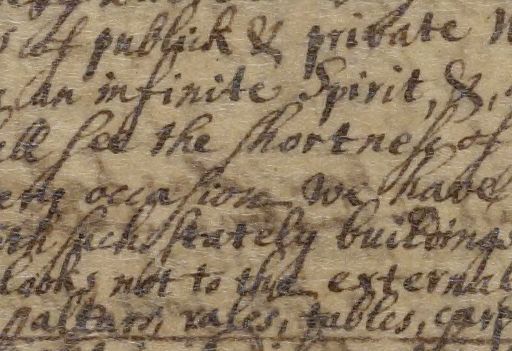 of publick & private
an infinite Spirit, &,
see the shortness of
occasion We have
such stately buildings
looks not to the external
altars, rales, tables, carp